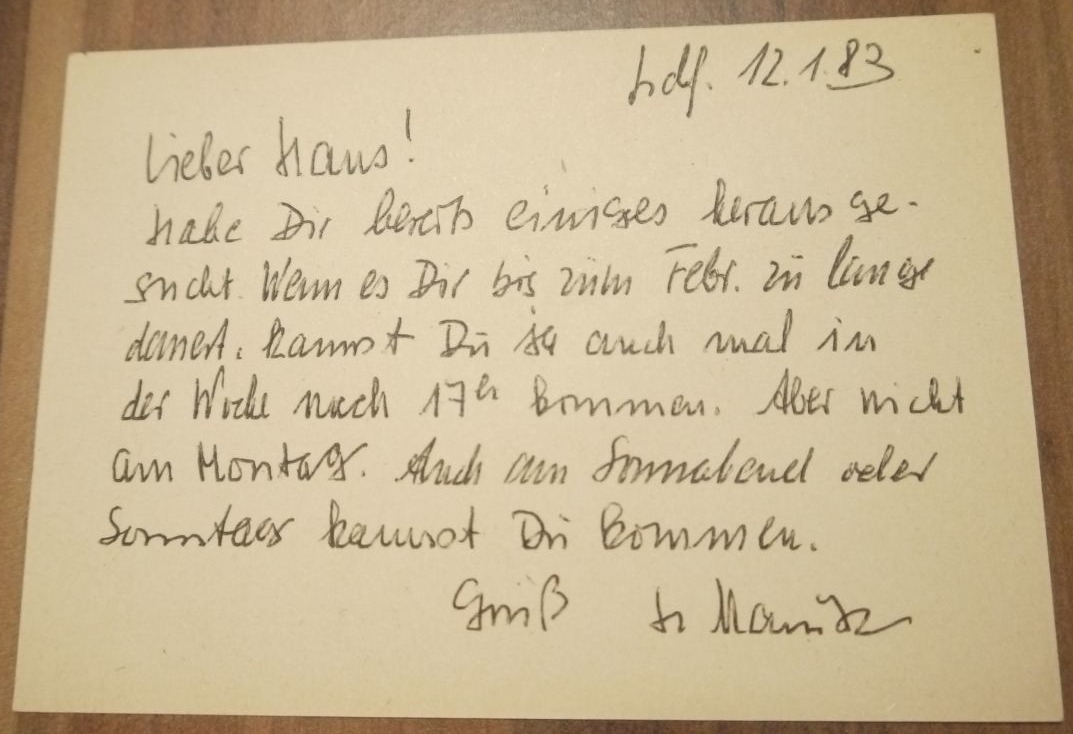 Hdf. 12.1.83
Lieber Hans!
Habe Dir bereits einiges herausge-
sucht. Wenn es Dir bis zum Febr. zu lange
dauert, kannst Du ja auch mal in
der Woche nach 17h kommen. Aber nicht
am Montag. Auch am Sonnabend oder
Sonntag kannst Du kommen.
Gruß H